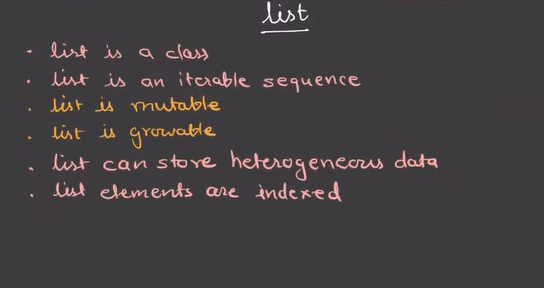 list
· list is a class
· list is an iterable sequence
· list is mutable
· list is growable
· list can store heterogeneous data
· list elements are indexed